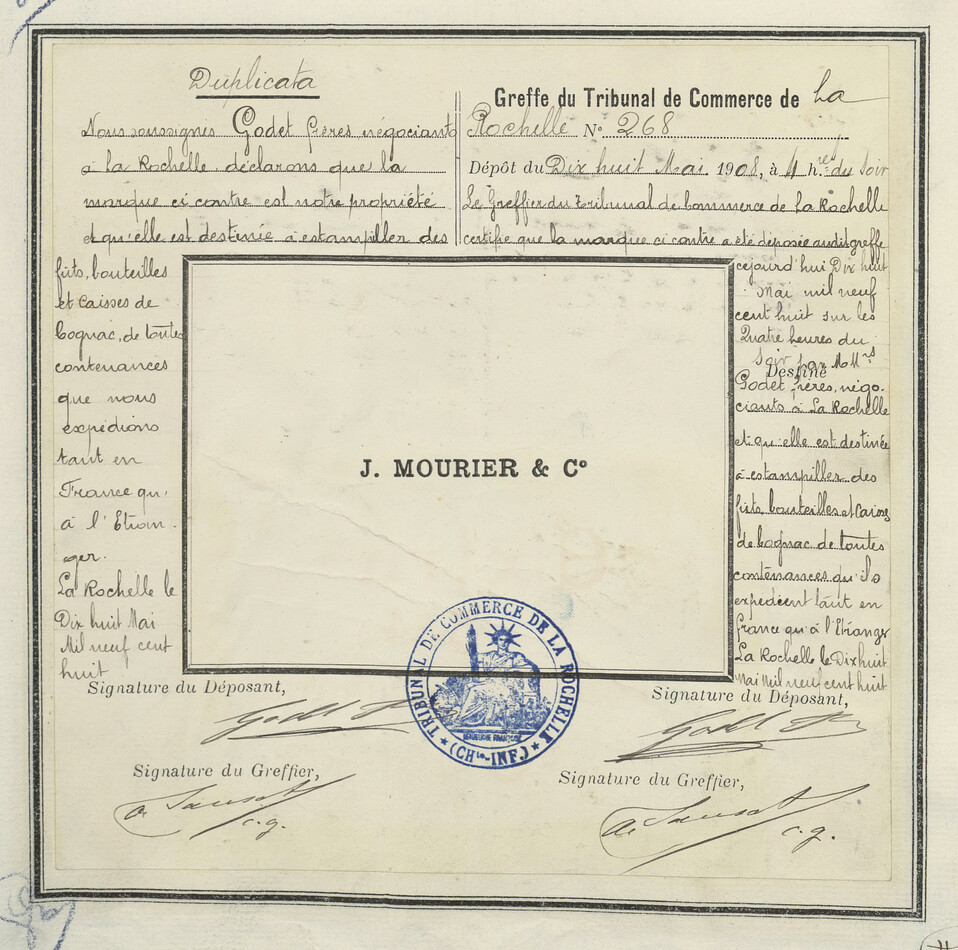 Duplicata
Nous soussignés Godet frères négociants
à La Rochelle, déclarons que la
marque ci contre est notre propriété
et qu'elle est destinée à estampiller des
fûts, bouteilles
et caisses de
Cognac, de toutes
contenances
que nous
expédions
tant en
France qu'
à l'Etran-
ger.
La Rochelle le
Dix huit Mai
Mil neuf cent
huit
Signature du Déposant,
Signature du Greffier,
c.g.
Greffe du Tribunal de Commerce de La
Rochelle N° 268
Dépôt du Dix huit Mai 1908, à 4 h.res du Soir
Le Greffier du Tribunal de Commerce de La Rochelle
certifie que la marque ci contre a été déposée audit greffe
cejourd'hui Dix huit
Mai mil neuf
cent huit sur les
Quatre heures du
Soir par MMrs
Destiné
Godet frères, négo-
ciants à La Rochelle
et qu'elle est destinée
à estampiller des
fûts, bouteilles et caisses
de Cognac de toutes
contenances qu'ils
expédient tant en
France qu'à l'Etranger
La Rochelle le Dix huit
Mai Mil neuf cent huit
Signature du Déposant,
Signature du Greffier,
c.g.
J. MOURIER & Cº
TRIBUNAL DE COMMERCE DE LA ROCHELLE
REPUBLIQUE FRANÇAISE
(CHte-INF.)